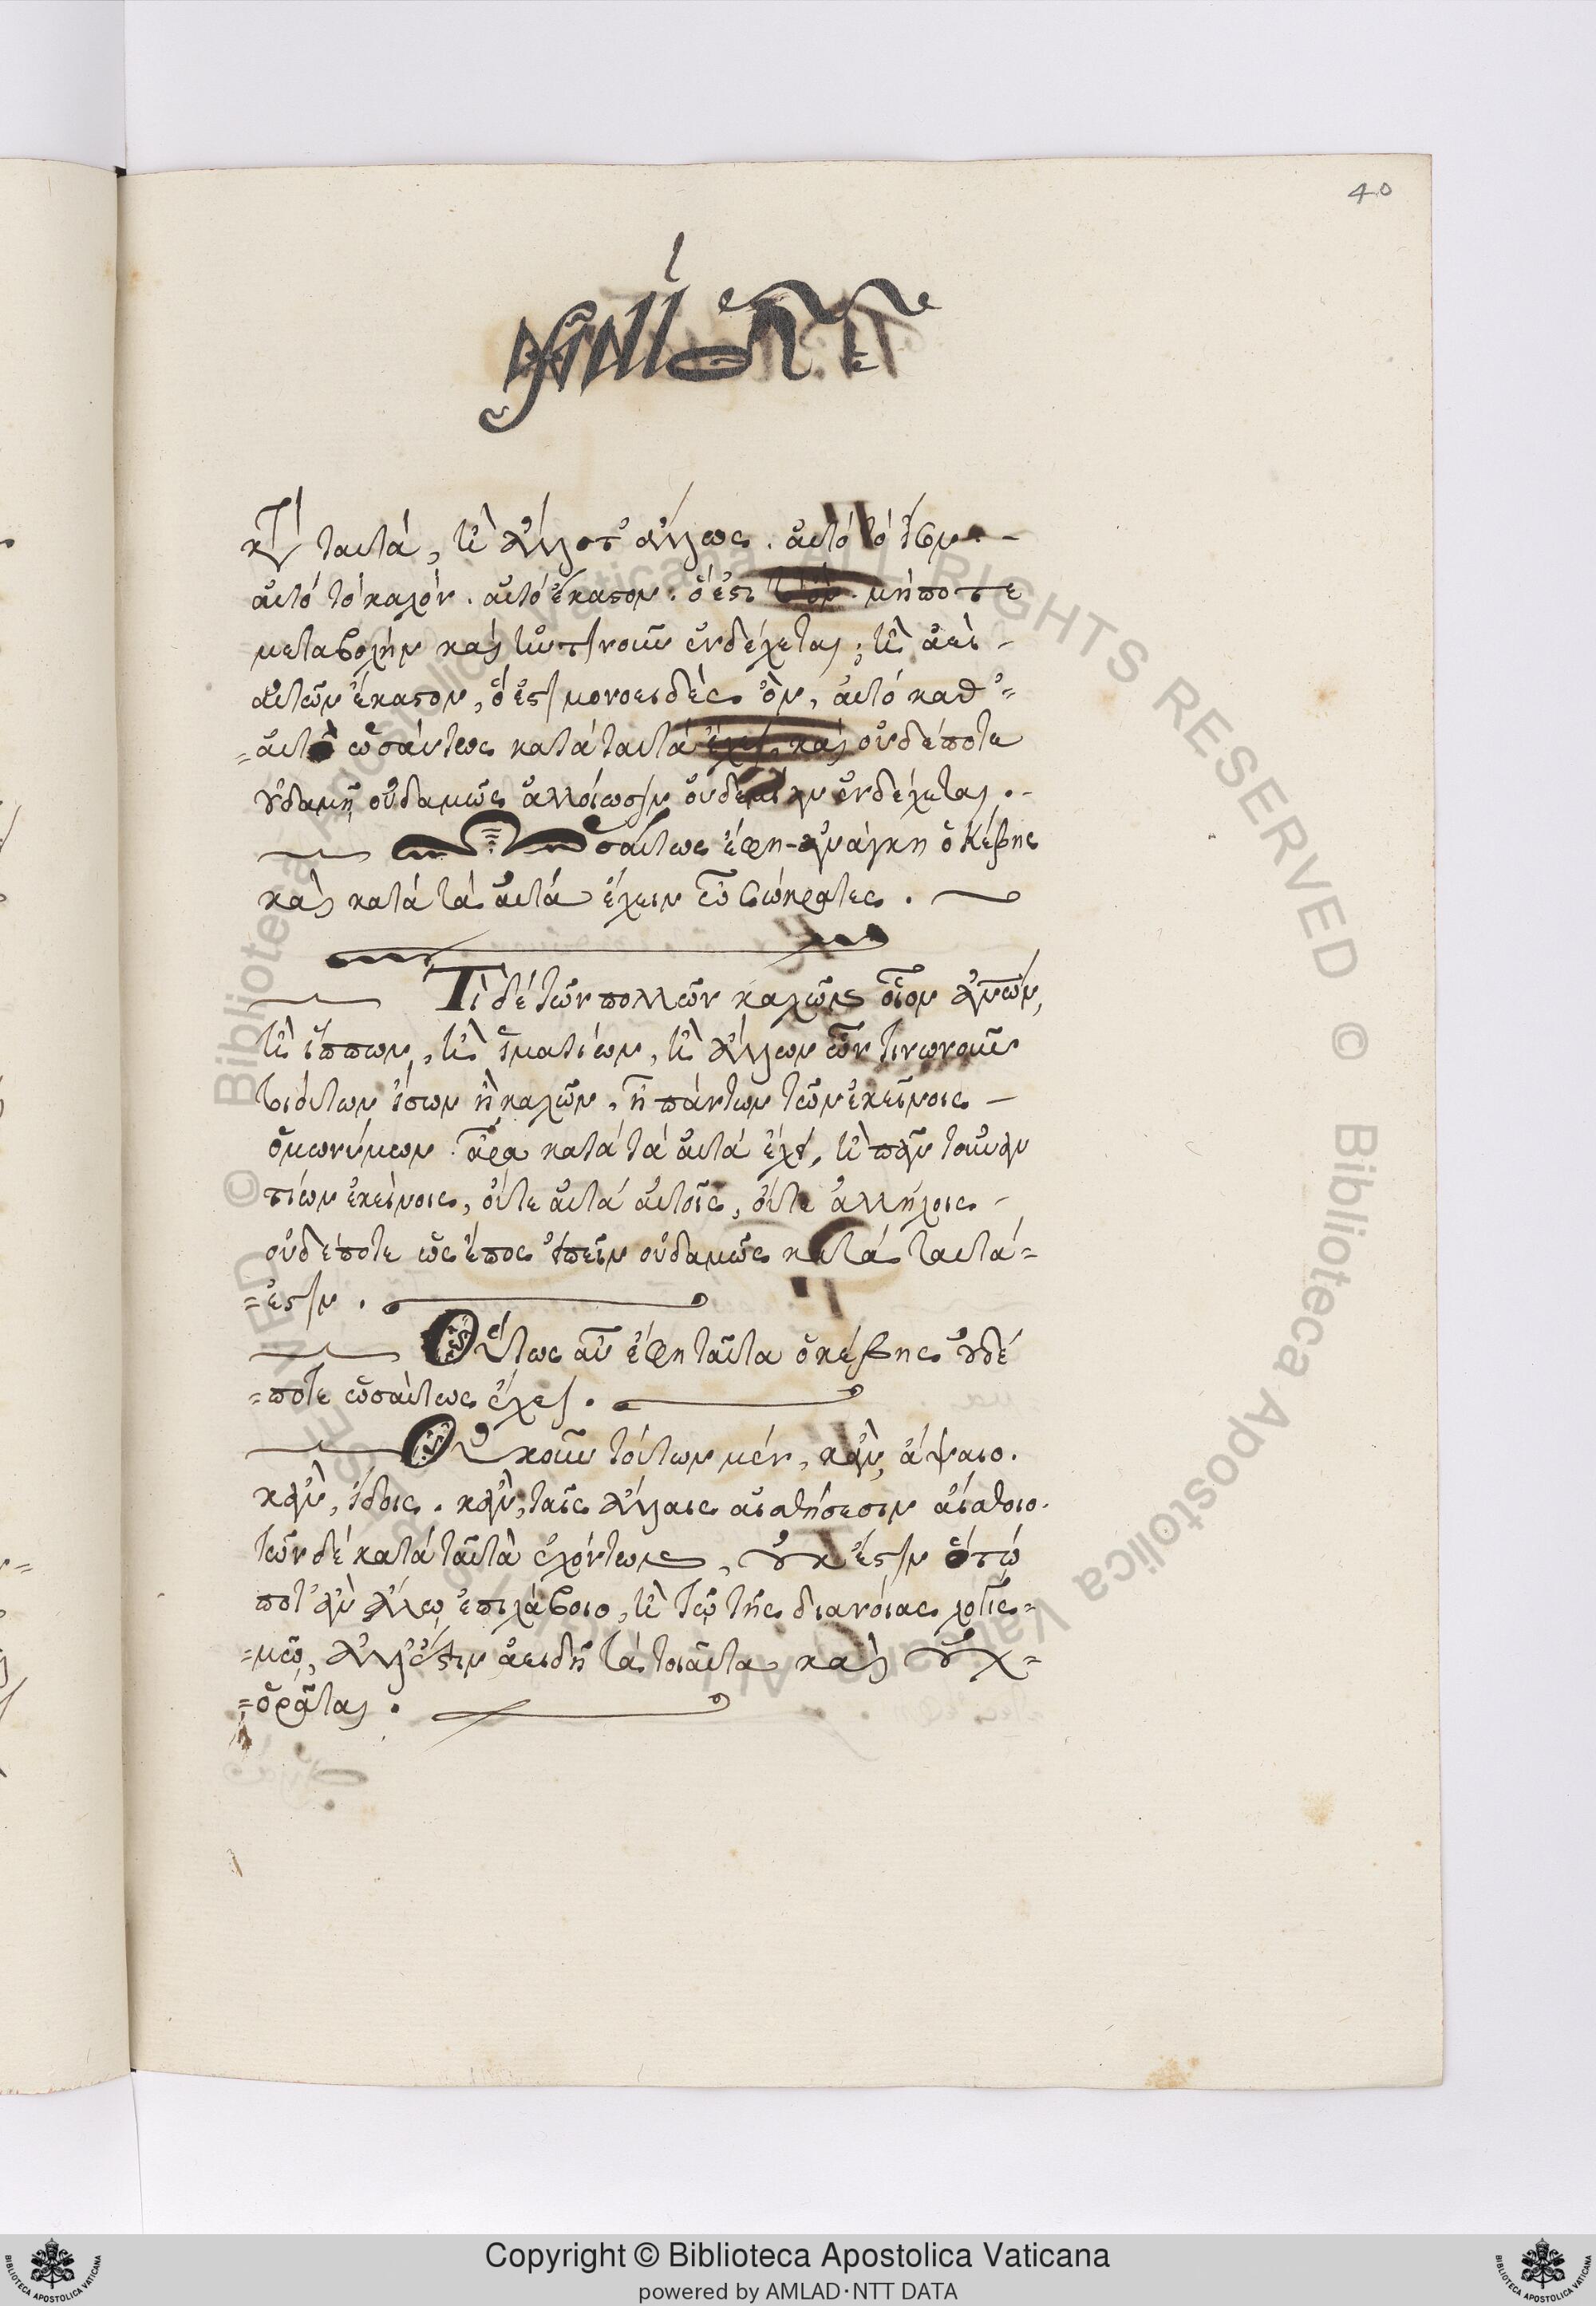 40
κατὰ ταυτά, ἢ ἄλλοτ' ἄλλως. αὐτό τό ἴσον.
αὐτό τό καλόν. αὐτό ἕκαστον. ὅ ἐστι τὸ ὄν. μήποτε
μεταβολήν καὶ ἡντινοῦν ἐνδέχεται; ἢ ἀεὶ
αὐτῶν ἕκαστον, ὅ ἐστι μονοειδές ὄν, αὐτό καθ'=
=αὑτὸ ὡσαύτως κατά ταυτά ἔχει, καὶ οὐδέποτε
οὐδαμῇ οὐδαμῶς ἀλλοίωσιν οὐδεμίαν ἐνδέχεται.
Ὡσαύτως ἔφη ἀνάγκη ὁ Κέβης
καὶ κατά τά αὐτά ἔχειν ὦ Σώκρατες.
Τὶ δέ τῶν πολλῶν καλῶν οἷον ἀνθρώπων,
ἢ ἵππων, ἢ ἱματίων, ἢ ἄλλων ὧν τινωνοῦν
τοιούτων ἴσων ἢ καλῶν, ἢ πάντων τῶν ἐκείνοις
ὁμωνύμων. ἆρα κατά τά αὐτά ἔχει, ἢ πᾶν τοὐναν
τίων ἐκείνοις, οὔτε αὐτά αὑτοῖς, οὔτε ἀλλήλοις
οὐδέποτε ὡς ἔπος εἰπεῖν οὐδαμῶς κατά ταυτά=
=ἐστιν.
Οὕτως αὖ ἔφη ταῦτα ὁ κέβης οὐδέ
=ποτε ὡσαύτως ἔχει.
Οὐκοῦν τούτων μέν, κἂν, ἅψαιο.
κἂν, ἴδοις. κἂν, ταῖς ἄλλαις αἰσθήσεσιν αἴσθοιο.
τῶν δέ κατά ταὐτὰ ἐχόντων, οὐκ ἔστιν ὅτῳ
ποτ' ἂν ἄλλῳ ἐπιλάβοιο, ἢ τῷ τῆς διανοίας λογισ=
=μῷ, ἀλλ' ἔστιν ἀειδῆ τά τοιαῦτα καὶ οὐχ=
=ὁρᾶται.
Copyright © Biblioteca Apostolica Vaticana
powered by AMLAD·NTT DATA
© Biblioteca Apostolica Vaticana ALL RIGHTS RESERVED
© Biblioteca Apostolica Vaticana ALL RIGHTS RESERVED